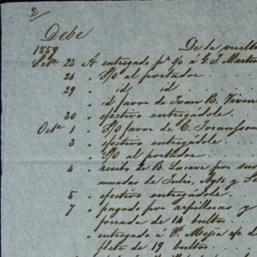 2
Debe
De la vuelta
1859
Set.e 23 A entregado p.r %o á G. J. Martin
24 " S/O al portador
29 " id id
" id favor de Juan B. Viven
30 " efectivo entregadole
Oct.e 1 " S/O favor de C. Swanson
3 " efectivo entregadole
" S/O al portador
4 " recibo de B. Lacave por sus
mesadas de Julio, Agto y S
5 " efectivo entregadole
7 " pagado por arpilleras y
forrada de 14 bultos
" entregado á P. Mejia
flete de 19 bultos